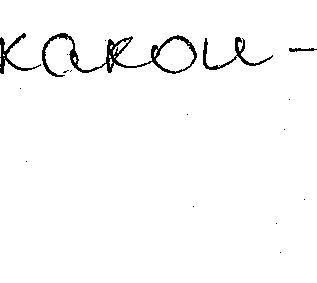 какои-